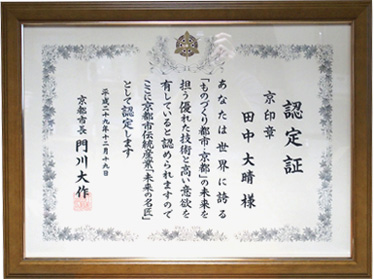 認定証
京印章
田中大晴様
あなたは世界に誇る
「ものづくり都市・京都」の未来を
担う優れた技術と高い意欲を
有していると認められますので
ここに京都市伝統産業「未来の名匠」
として認定します
平成二十九年十二月十九日
京都市長 門川大作